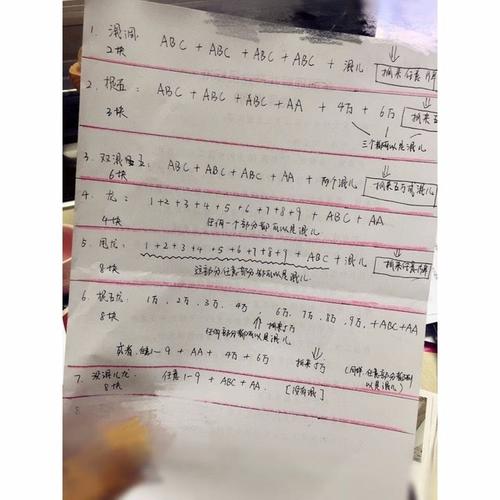 1. 混洞
2块 ABC + ABC + ABC + ABC + 混儿 摘来任意牌
2. 捉五:
3块 ABC + ABC + ABC + AA + 4万 + 6万 摘来五
三个都可以是混儿
3. 双混捉五:
6块 ABC + ABC + ABC + AA + 两个混儿 摘来五万或混儿
4. 龙:
4块 1+2+3+4+5+6+7+8+9 + ABC + AA
任何一个部分都可以是混儿
5. 混龙:
8块 1+2+3+4+5+6+7+8+9 + ABC + 混儿 摘来任意牌
这部分任意部分都可以是混儿
6. 捉五龙: 1万, 2万, 3万, 4万 6万, 7万, 8万, 9万, +ABC+AA
8块 摘来5万
任何部分都可以是混儿
或者, 1-9 + AA + 4万 + 6万 摘来5万 (同样任意部分都可以是混儿)
7. 没混儿龙:
8块 任意1-9 + ABC + AA. [没有混]
8.